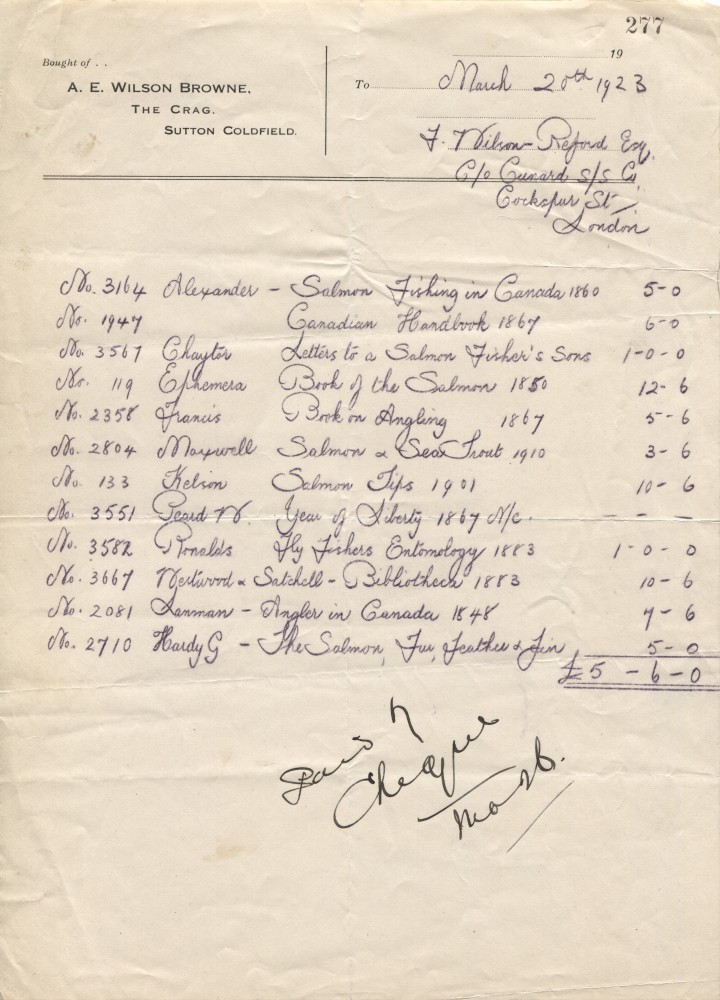 277
Bought of . .
A. E. WILSON BROWNE,
THE CRAG,
SUTTON COLDFIELD.
19
To March 20th 1923
F. Wilson-Reford Esq.
C/o Cunard S/S Co
Cockspur St
London
No. 3164 Alexander - Salmon Fishing in Canada 1860 5-0
No. 1947 Canadian Handbook 1867 6-0
No. 3567 Chaytor Letters to a Salmon Fisher's Sons 1-0-0
No. 119 Ephemera Book of the Salmon 1850 12-6
No. 2358 Francis Book on Angling 1867 5-6
No. 2804 Maxwell Salmon & Sea Trout 1910 3-6
No. 133 Kelson Salmon Tips 1901 10-6
No. 3551 Peard W. Year of Liberty 1867 N/c. - - -
No. 3582 Ronalds Fly Fishers Entomology 1883 1-0-0
No. 3667 Westwood & Satchell - Bibliotheca 1883 10-6
No. 2081 Lanman - Angler in Canada 1848 7-6
No. 2710 Hardy G - The Salmon, Fur, Feather & Fin 5-0
£5-6-0
Paid by
Cheque